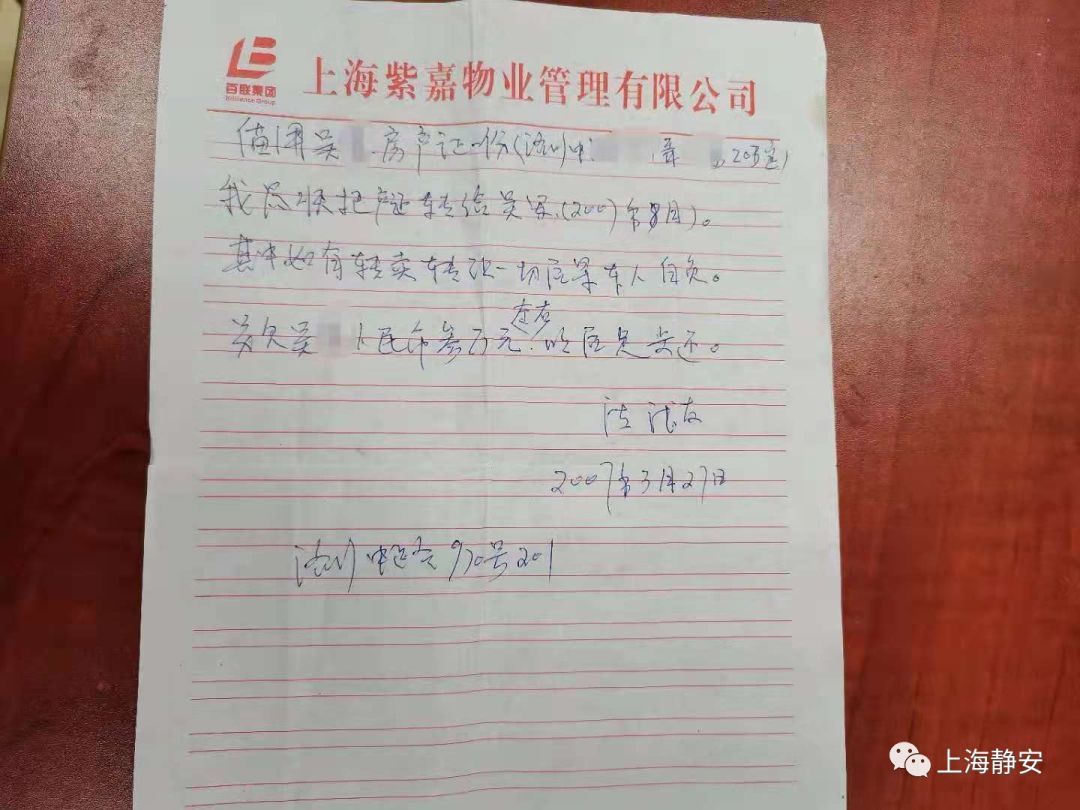 百联集团
上海紫嘉物业管理有限公司
借用吴 房产证一份(洛川中 弄 203室)
我尽快把产证转给吴 (2007年8月)。
其中如有转卖转让一切后果本人自负。
另欠吴 人民币叁万元左右
2007年3月27日
洛川中路970号201
上海静安